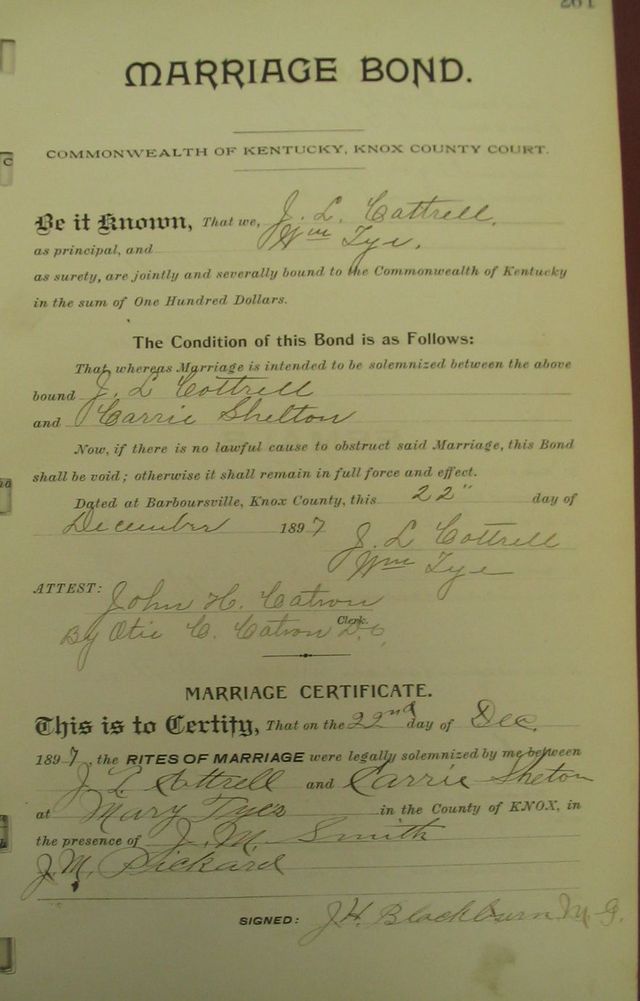 261
MARRIAGE BOND.
COMMONWEALTH OF KENTUCKY, KNOX COUNTY COURT.
Be it Known, That we, J. L. Cottrell,
as principal, and Wm Tye,
as surety, are jointly and severally bound to the Commonwealth of Kentucky
in the sum of One Hundred Dollars.
The Condition of this Bond is as Follows:
That whereas Marriage is intended to be solemnized between the above
bound J. L Cottrell
and Carrie Shelton
Now, if there is no lawful cause to obstruct said Marriage, this Bond
shall be void; otherwise it shall remain in full force and effect.
Dated at Barboursville, Knox County, this 22" day of
December 1897
J. L Cottrell
Wm Tye
ATTEST: John H. Catron
Clerk.
By Otis C. Catron D.C.
MARRIAGE CERTIFICATE.
This is to Certify, That on the 22nd day of Dec.
1897, the RITES OF MARRIAGE were legally solemnized by me between
J. L Cottrell and Carrie Shelton
at Mary Tyes in the County of KNOX, in
the presence of J. M. Smith
J. M. Pickard
SIGNED: J. H. Blackburn M. G.